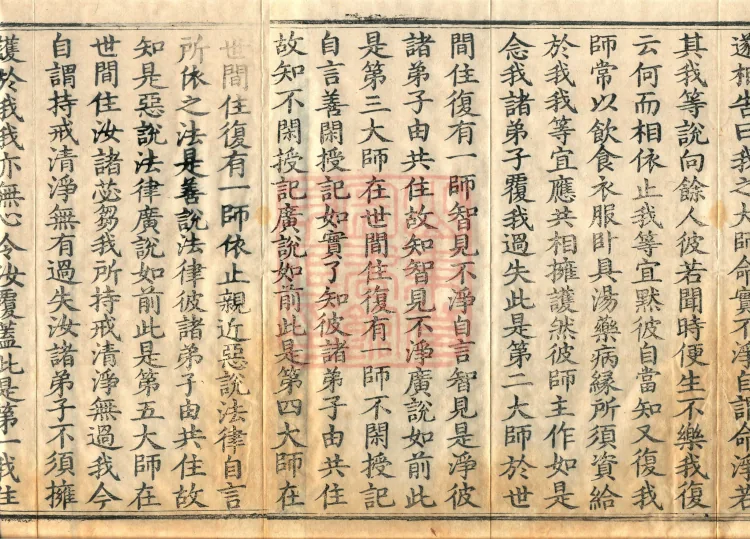 遂相告曰我之大師命實不淨自許命淨若
其我等說向餘人彼若聞時便生不樂我復
云何而相依止我等宜黙彼自當知又復我
師常以飲食衣服卧具湯藥病緣所須資給
於我我等宜應共相擁護然彼師主作如是
念我諸弟子覆我過失此是第二大師於世
間住復有一師智見不淨自言智見是淨彼
諸弟子由共住故知智見不淨廣說如前此
是第三大師在世間住復有一師不閑授記
自言善閑授記如實了知彼諸弟子由共住
故知不閑授記廣說如前此是第四大師在
世間住復有一師依止親近惡說法律自言
所依之法是善說法律彼諸弟子由共住故
知是惡說法律廣說如前此是第五大師在
世間住汝諸苾芻我所持戒清淨無過我今
自謂持戒清淨無有過失汝諸弟子不須擁
護於我我亦無心令汝覆蓋此是第一我住